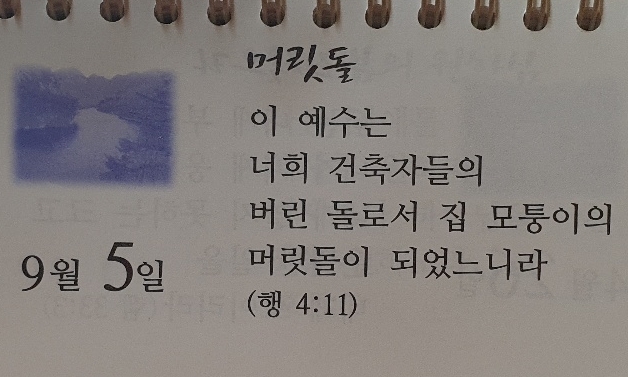 머릿돌
이 예수는
너희 건축자들의
버린 돌로서 집 모퉁이의
머릿돌이 되었느니라
(행 4:11)
9월 5일